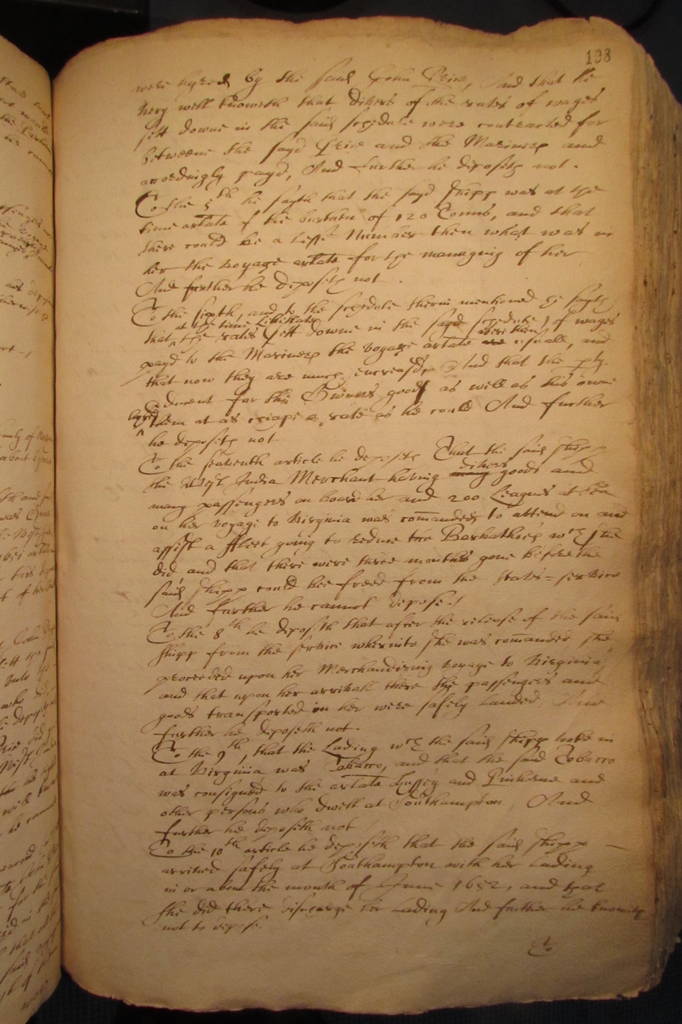 198
were hyred by the said John Price, And that he
very well knoweth that divers of the rates of wages
sett downe in the said scedule were contracted for
betweene the sayd Price and the Mariners and
accordingly payd, And further he deposeth not.
To the 5th he sayth that the sayd shipp was at the
time arlate of the burthen of 120 Tonns, and that
there could be a lesse number then what was in
her the voyage arlate for the managing of her
And further he deposeth not
To the sixth, and to the scedule therin mentioned he sayth
that at the time the rates sett downe in the sayd scedule of wages
payd to the Mariners the voyage arlate were then usuall, and
that now they are more increased, And that the
for the Owners good as well as his owne
hyred them at as cheape a rate as he could And further
he deposeth not
To the seaventh article he deposeth That the said shipp
the West India Merchant having divers goods and
many passengers on board her and 200 Leagues at sea
on her voyage to Virginia was comanded to attend on and
assist a fleet going to reduce the Barbathoes wch she
did and that there were three months gone before the
said shipp could bee freed from the States service
And further he cannot depose
To the 8th he deposeth that after the release of the said
shipp from the service whereunto she was comanded she
proceeded upon her Merchandizing voyage to Virginia
and that upon her arrivall there the passengers and
goods transported in her were safely landed And
further he deposeth not.
To the 9th, that the Lading wch the said shipp tooke in
at Virginia was Tobacco, and that the said Tobacco
was consigned to the arlate and and
other persons who dwell at Southampton, And
further he deposeth not
To the 10th article he deposeth that the said shipp
arrived safely at Southampton with her Lading
in or about the month of June 1652, and that
she did there discharge her Lading And further he knoweth
not to depose.
To